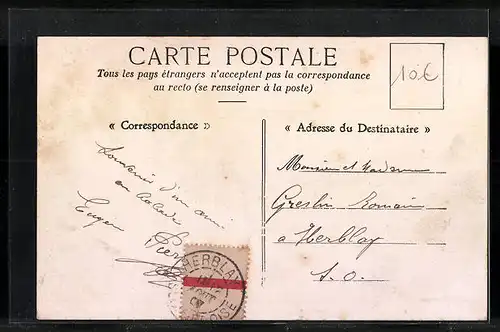 CARTE POSTALE
Tous les pays étrangers n'acceptent pas la correspondance
au recto (se renseigner à la poste)
10€
« Correspondance »
« Adresse du Destinataire »
Souvenir d'un ami
en
Eugen
Pierre
Monsieur et Madame
Greslin Romain
a Herblay
S. O.
HERBLAY
OISE